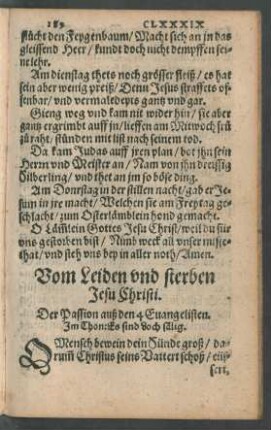 189 CLXXXIX
flůcht den Feygenbaum/ Macht sich an in das
gleissend Heer/ kundt doch nicht dempffen sei-
ne lehr.
Am dienstag thets noch grösser fleiß/ es hat
sein aber wenig preiß/ Denn Jesus straffets of-
fenbar/ vnd vermaledeyts gantz vnd gar.
Gieng weg vnd kam nit wider hin/ sie aber
gantz ergrimbt auff jn/ lieffen am Mitwoch frü
zů raht/ stůnden mit list nach seinem tod.
Da kam Judas auff jren plan/ bot jhn sein
Herrn vnd Meister an/ Nam von jhn dreissig
Silberling/ vnd thet an jm so böse ding.
Am Donrstag in der stillen nacht/ gab er Je-
sum in jre macht/ Welchen sie am Freytag ge-
schlacht/ zum Osterlämblein hond gemacht.
O Läm̃lein Gottes Jesu Christ/ weil du für
vns gestorben bist/ Nimb weck all vnser misse-
that/ vnd steh vns bey in aller noth/ Amen.
Vom Leiden vnd sterben
Jesu Christi.
Der Passion auß den 4 Euangelisten.
Im Thon: Es sind doch sälig.
O Mensch bewein dein Sünde groß/ da-
rum̃ Christus seins Vatters schoß/ eüs-
sert,